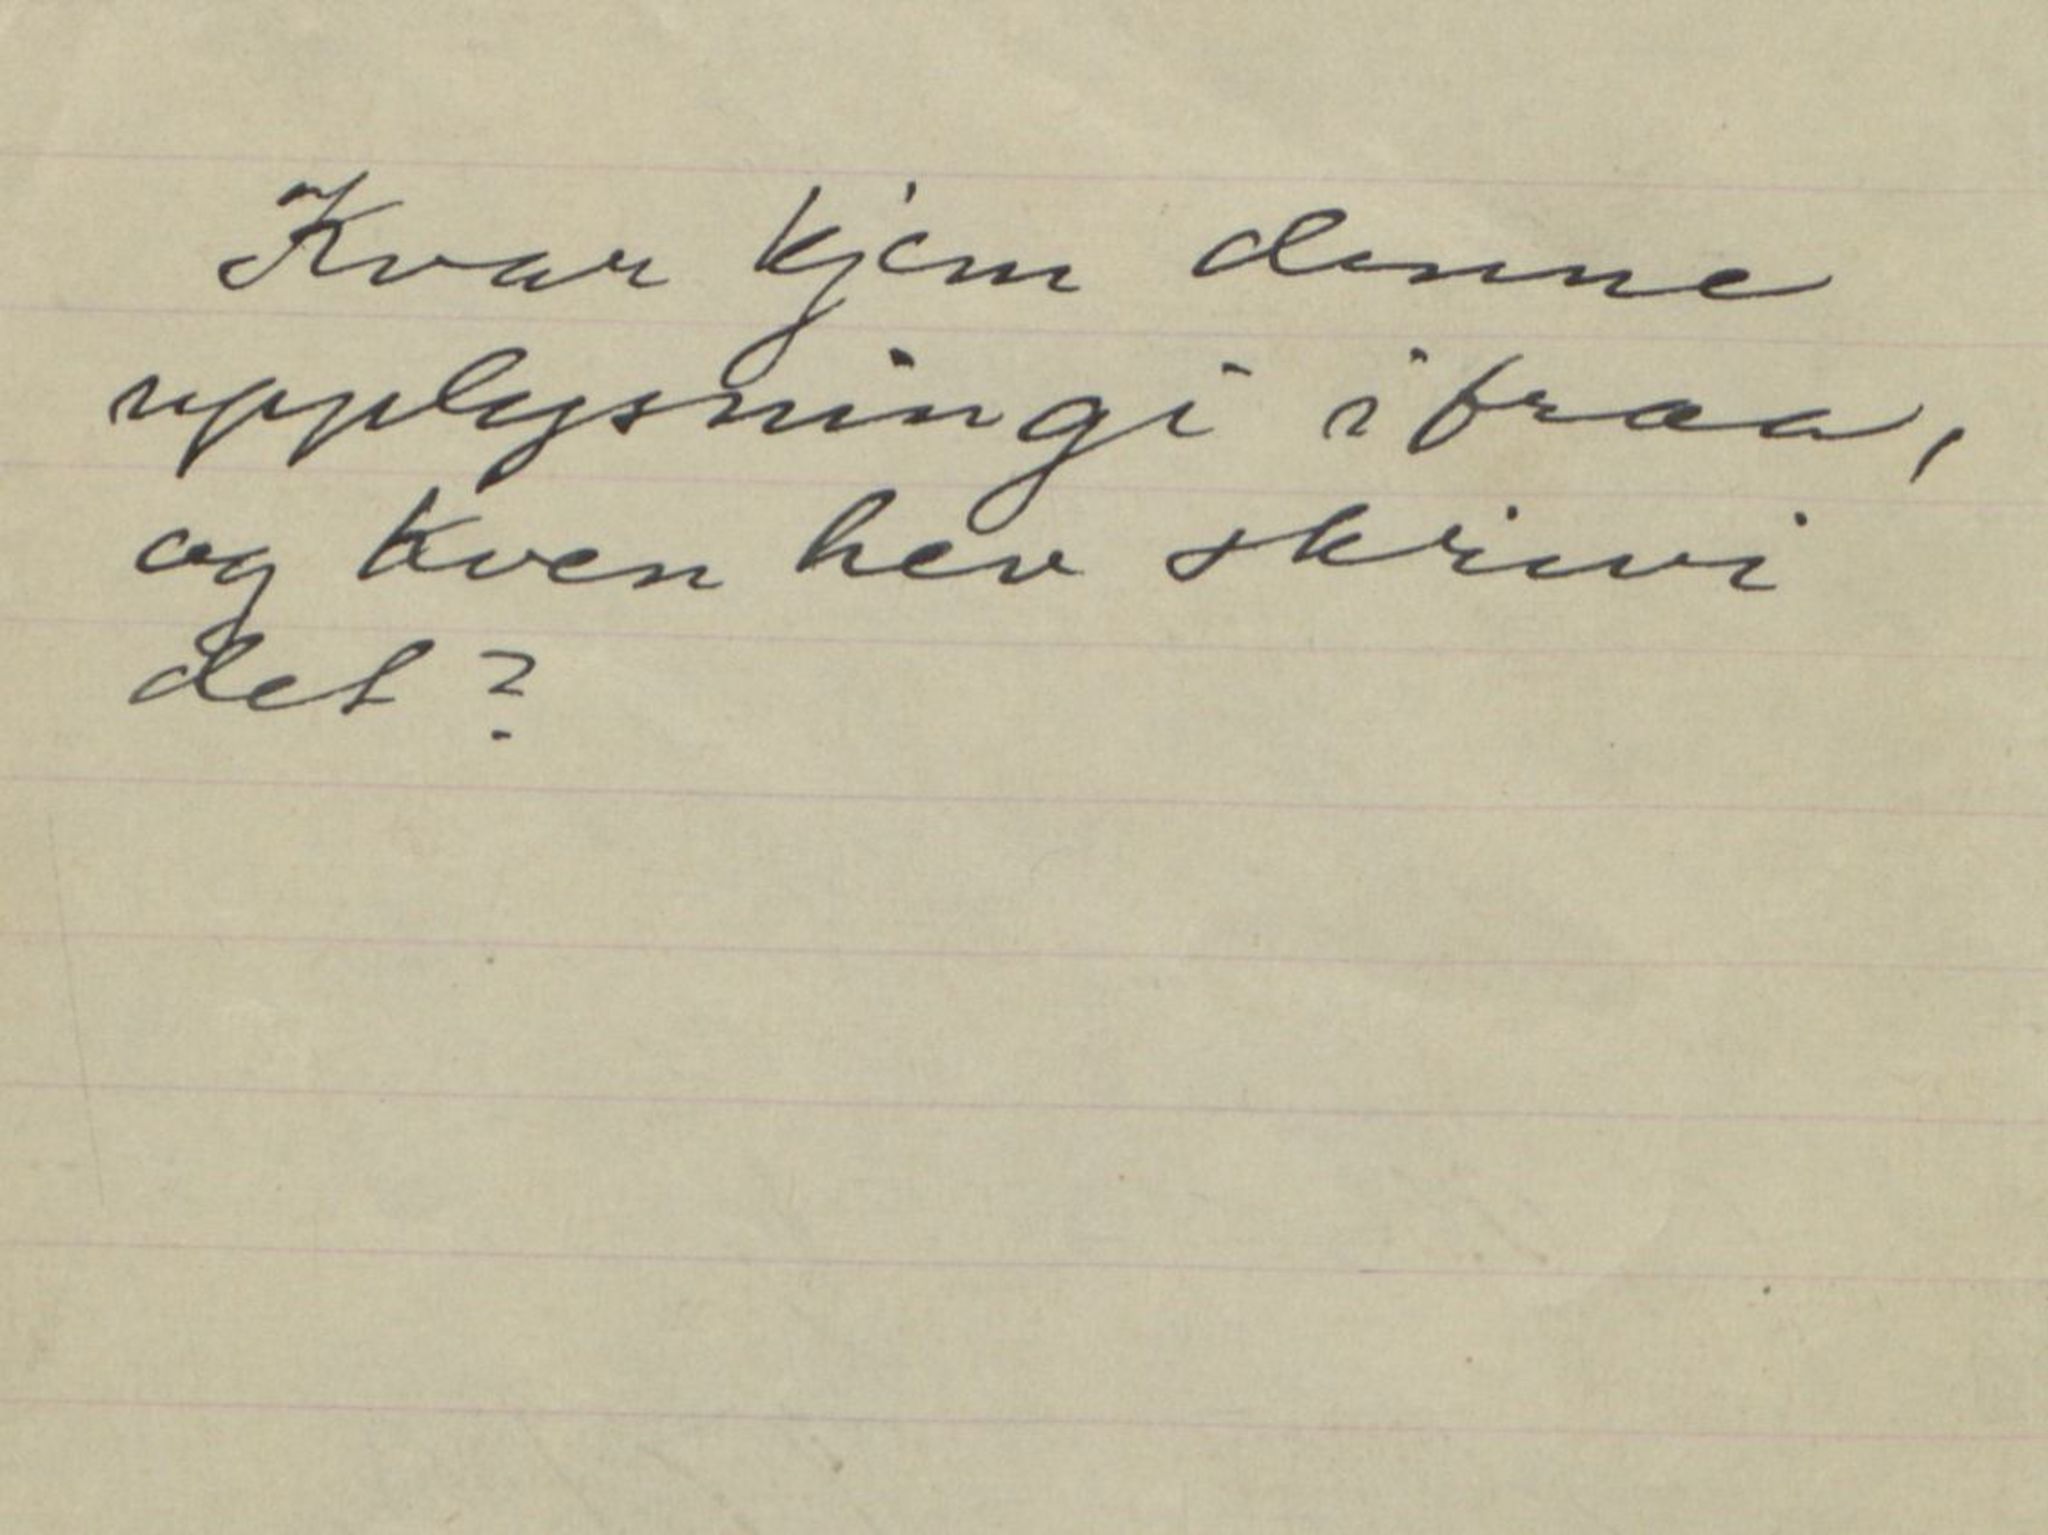 Kvar kjem denne
upplysningi ifraa,
og kven hev skrivi
det?